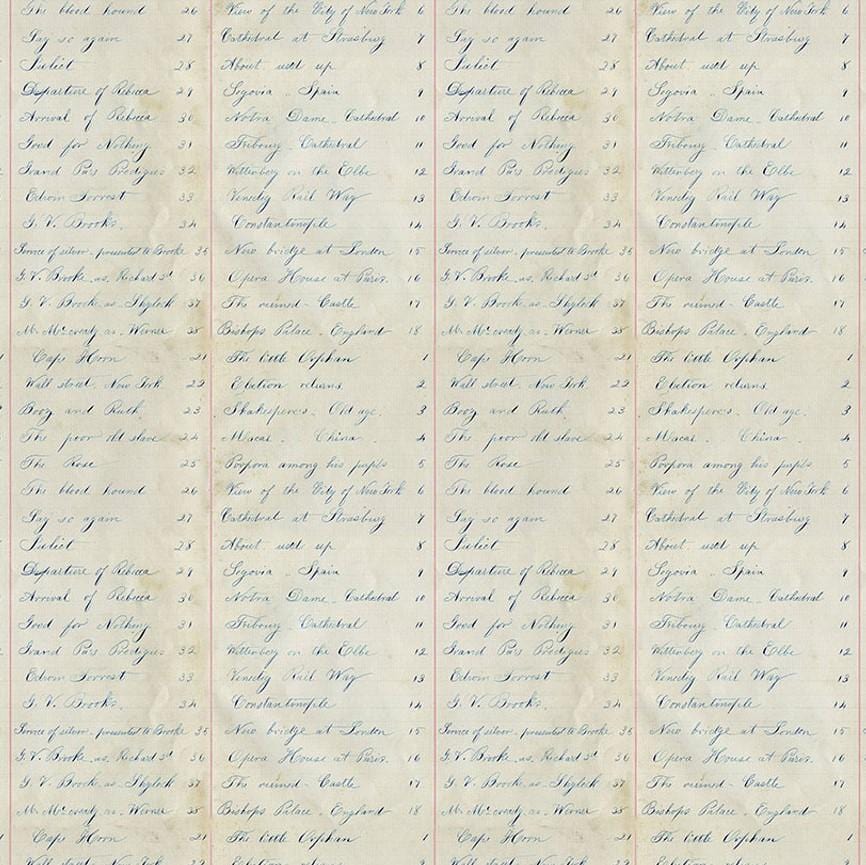 The blood hound 26 View of the City of New York 6 The blood hound 26 View of the City of New York 6
Say so again 27 Cathedral at Strasburg 7 Say so again 27 Cathedral at Strasburg 7
Juliet 28 About used up 8 Juliet 28 About used up 8
Departure of Rebecca 29 Segovia Spain 9 Departure of Rebecca 29 Segovia Spain 9
Arrival of Rebecca 30 Notra Dame Cathedral 10 Arrival of Rebecca 30 Notra Dame Cathedral 10
Good for Nothing 31 Fribourg Cathedral 11 Good for Nothing 31 Fribourg Cathedral 11
Grand Pa's Prodigies 32 Wittenberg on the Elbe 12 Grand Pa's Prodigies 32 Wittenberg on the Elbe 12
Edwin Forrest 33 Venedig Rail Way 13 Edwin Forrest 33 Venedig Rail Way 13
G. V. Brooke. 34 Constantinople 14 G. V. Brooke. 34 Constantinople 14
Service of silver. presented to Brooke 35 New bridge at London 15 Service of silver. presented to Brooke 35 New bridge at London 15
G. V. Brooke as. Richard 3d 36 Opera House at Paris. 16 G. V. Brooke as. Richard 3d 36 Opera House at Paris. 16
G. V. Brooke as Shylock 37 The ruined Castle 17 G. V. Brooke as Shylock 37 The ruined Castle 17
Mr McCready as. Werner 38 Bishops Palace. England 18 Mr McCready as. Werner 38 Bishops Palace. England 18
Cape Horn 21 The little Orphan 1 Cape Horn 21 The little Orphan 1
Wall street. New York 22 Election returns. 2 Wall street. New York 22 Election returns. 2
Booz and Ruth. 23 Shakespere's. Old age. 3 Booz and Ruth. 23 Shakespere's. Old age. 3
The poor old slave 24 Macao. China. 4 The poor old slave 24 Macao. China. 4
The Rose 25 Porpora among his pupils 5 The Rose 25 Porpora among his pupils 5
The blood hound 26 View of the City of New York 6 The blood hound 26 View of the City of New York 6
Say so again 27 Cathedral at Strasburg 7 Say so again 27 Cathedral at Strasburg 7
Juliet 28 About used up 8 Juliet 28 About used up 8
Departure of Rebecca 29 Segovia Spain 9 Departure of Rebecca 29 Segovia Spain 9
Arrival of Rebecca 30 Notra Dame Cathedral 10 Arrival of Rebecca 30 Notra Dame Cathedral 10
Good for Nothing 31 Fribourg Cathedral 11 Good for Nothing 31 Fribourg Cathedral 11
Grand Pa's Prodigies 32 Wittenberg on the Elbe 12 Grand Pa's Prodigies 32 Wittenberg on the Elbe 12
Edwin Forrest 33 Venedig Rail Way 13 Edwin Forrest 33 Venedig Rail Way 13
G. V. Brooke. 34 Constantinople 14 G. V. Brooke. 34 Constantinople 14
Service of silver. presented to Brooke 35 New bridge at London 15 Service of silver. presented to Brooke 35 New bridge at London 15
G. V. Brooke as. Richard 3d 36 Opera House at Paris. 16 G. V. Brooke as. Richard 3d 36 Opera House at Paris. 16
G. V. Brooke as Shylock 37 The ruined Castle 17 G. V. Brooke as Shylock 37 The ruined Castle 17
Mr McCready as. Werner 38 Bishops Palace. England 18 Mr McCready as. Werner 38 Bishops Palace. England 18
Cape Horn 21 The little Orphan 1 Cape Horn 21 The little Orphan 1
Wall street. New York 22 Election returns. 2 Wall street. New York 22 Election returns. 2